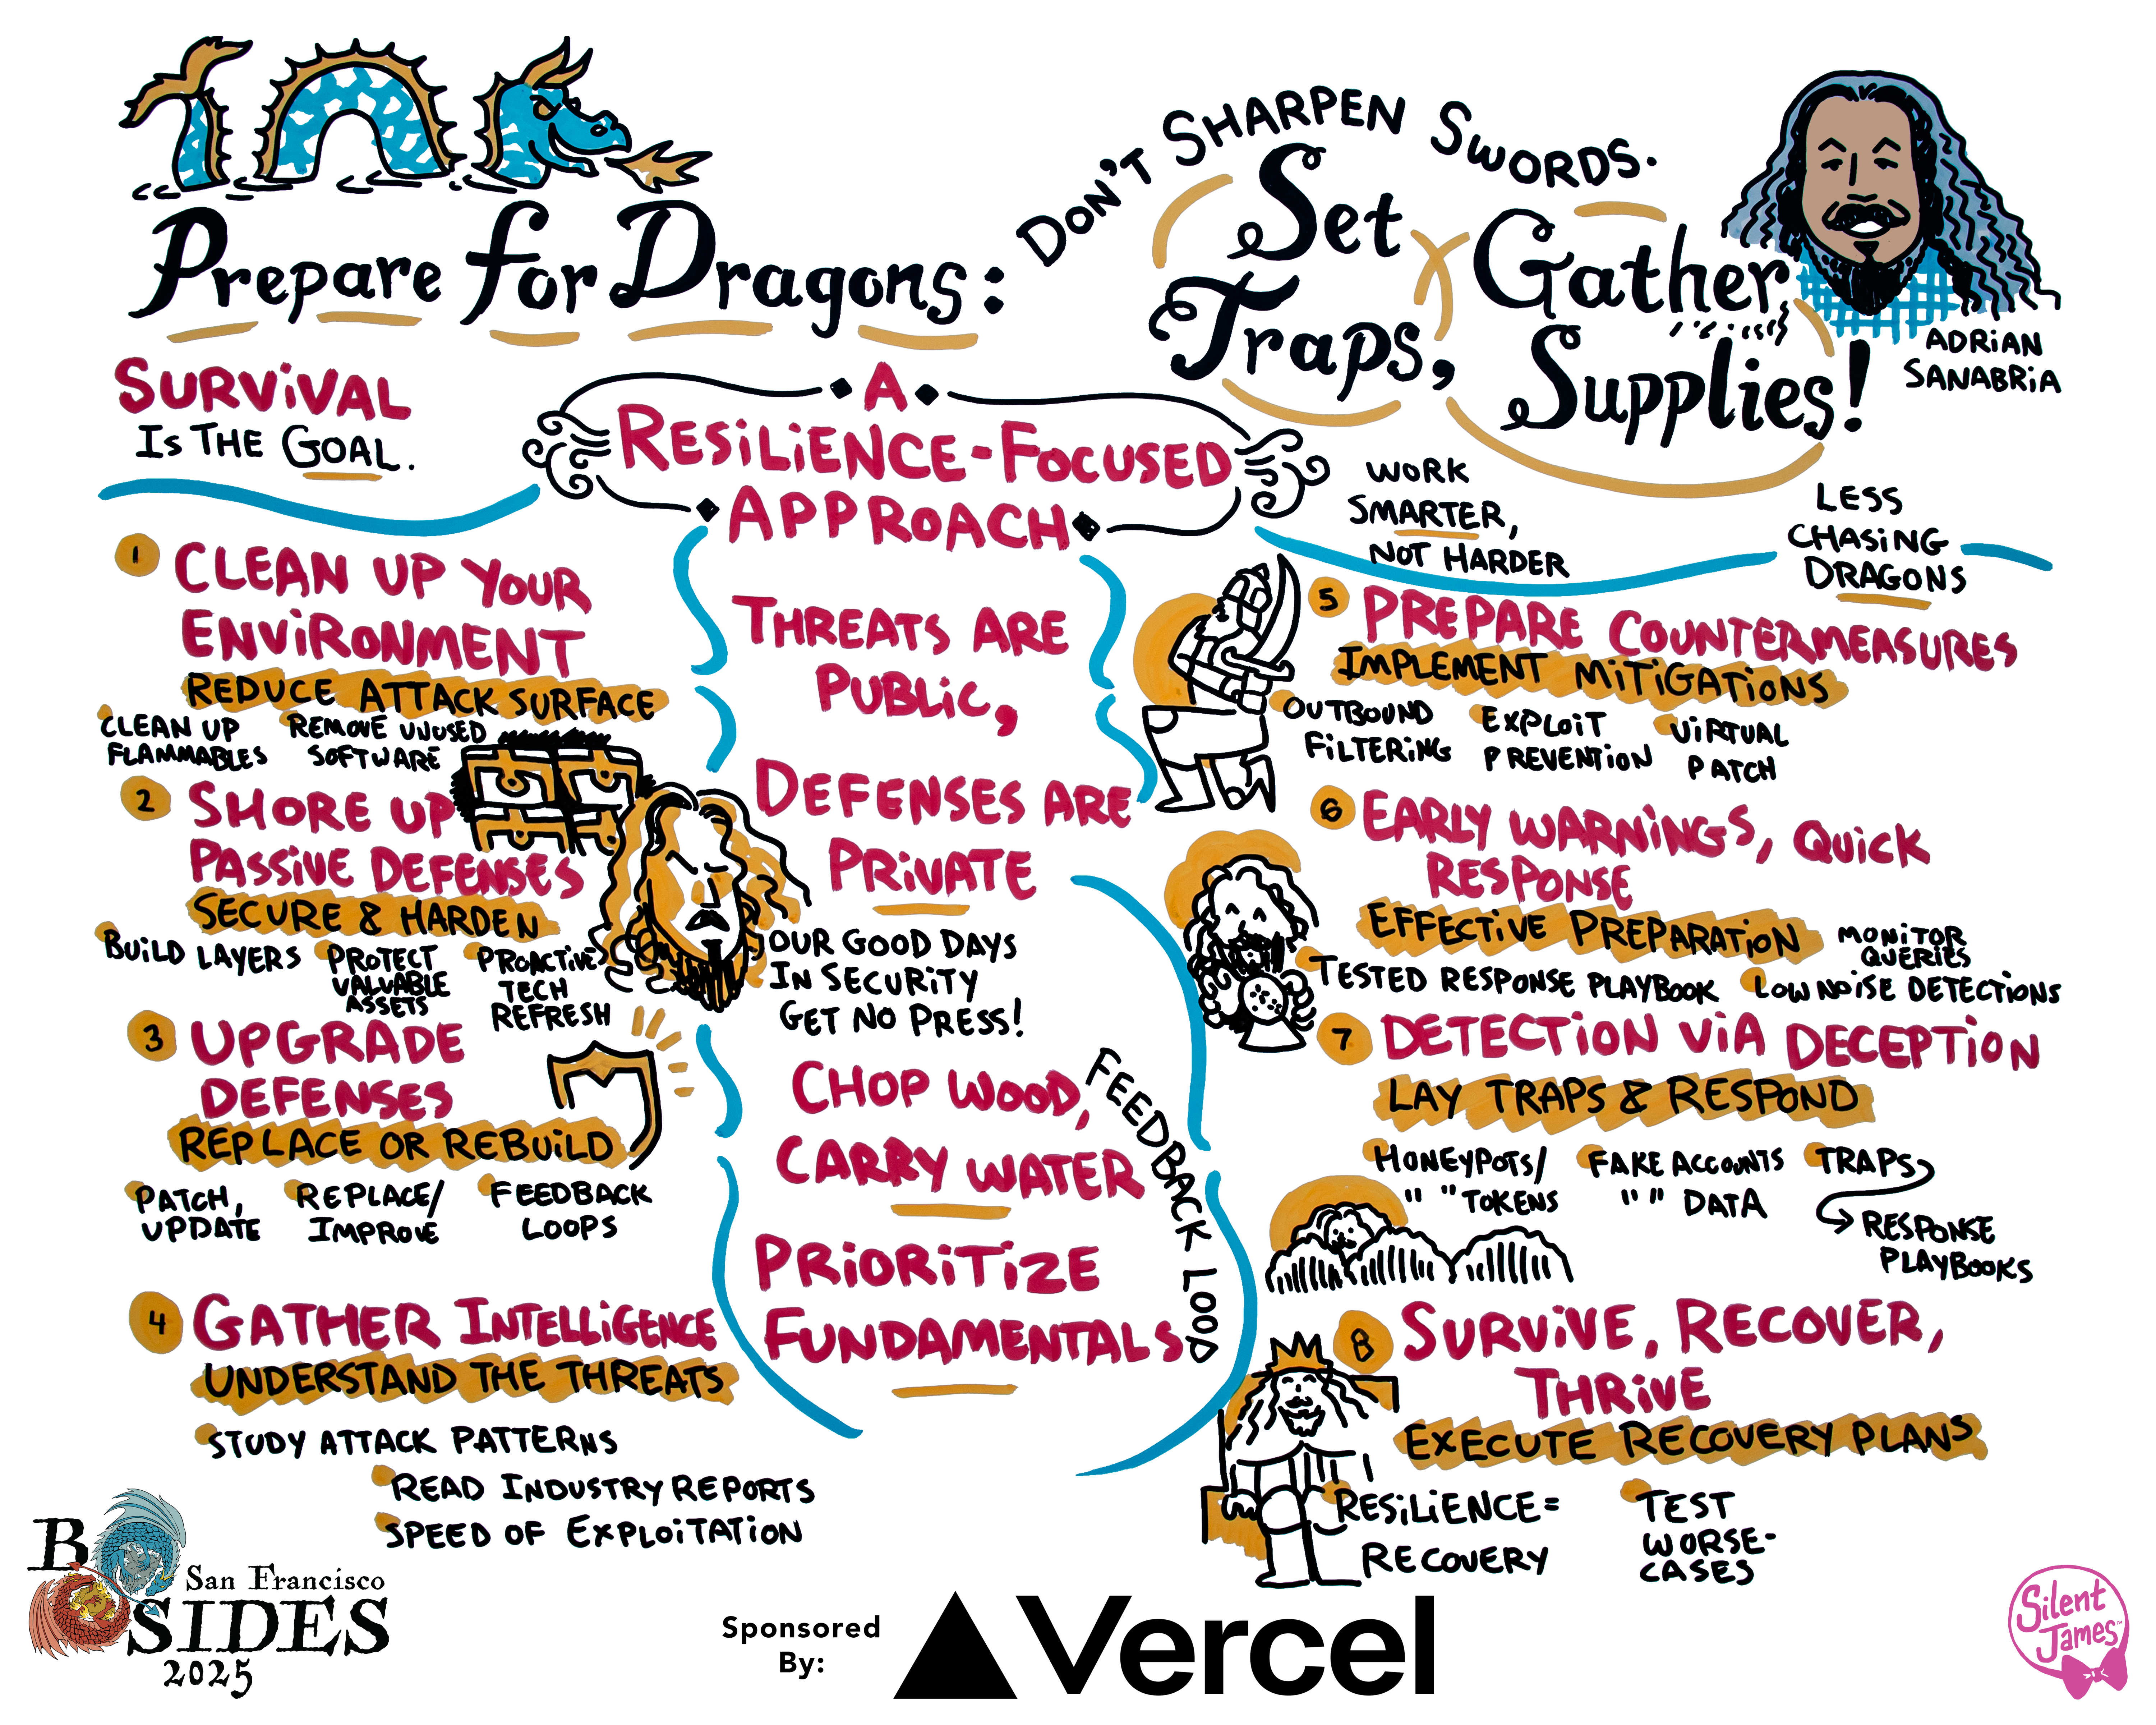 Prepare for Dragons:
DON'T SHARPEN SWORDS.
Set
Traps,
Gather
Supplies!
ADRIAN
SANABRIA
SURVIVAL
IS THE GOAL.
A
RESILIENCE-FOCUSED
APPROACH
WORK
SMARTER,
NOT HARDER
LESS
CHASING
DRAGONS
1
CLEAN UP YOUR
ENVIRONMENT
REDUCE ATTACK SURFACE
CLEAN UP
FLAMMABLES
REMOVE UNUSED
SOFTWARE
2
SHORE UP
PASSIVE DEFENSES
SECURE & HARDEN
BUILD LAYERS
PROTECT
VALUABLE
ASSETS
PROACTIVE
TECH
REFRESH
3
UPGRADE
DEFENSES
REPLACE OR REBUILD
PATCH,
UPDATE
REPLACE/
IMPROVE
FEEDBACK
LOOPS
4
GATHER INTELLIGENCE
UNDERSTAND THE THREATS
STUDY ATTACK PATTERNS
READ INDUSTRY REPORTS
SPEED OF EXPLOITATION
THREATS ARE
PUBLIC,
DEFENSES ARE
PRIVATE
OUR GOOD DAYS
IN SECURITY
GET NO PRESS!
CHOP WOOD,
CARRY WATER
PRIORITIZE
FUNDAMENTALS
FEEDBACK LOOP
5
PREPARE COUNTERMEASURES
IMPLEMENT MITIGATIONS
OUTBOUND
FILTERING
EXPLOIT
PREVENTION
VIRTUAL
PATCH
6
EARLY WARNINGS, QUICK
RESPONSE
EFFECTIVE PREPARATION
MONITOR
QUERIES
TESTED RESPONSE PLAYBOOK
LOW NOISE DETECTIONS
7
DETECTION VIA DECEPTION
LAY TRAPS & RESPOND
HONEYPOTS/
" " TOKENS
FAKE ACCOUNTS
" " DATA
TRAPS
RESPONSE
PLAYBOOKS
8
SURVIVE, RECOVER,
THRIVE
EXECUTE RECOVERY PLANS
RESILIENCE=
RECOVERY
TEST
WORSE-
CASES
B
San Francisco
SIDES
2025
Sponsored
By:
Vercel
Silent
James™